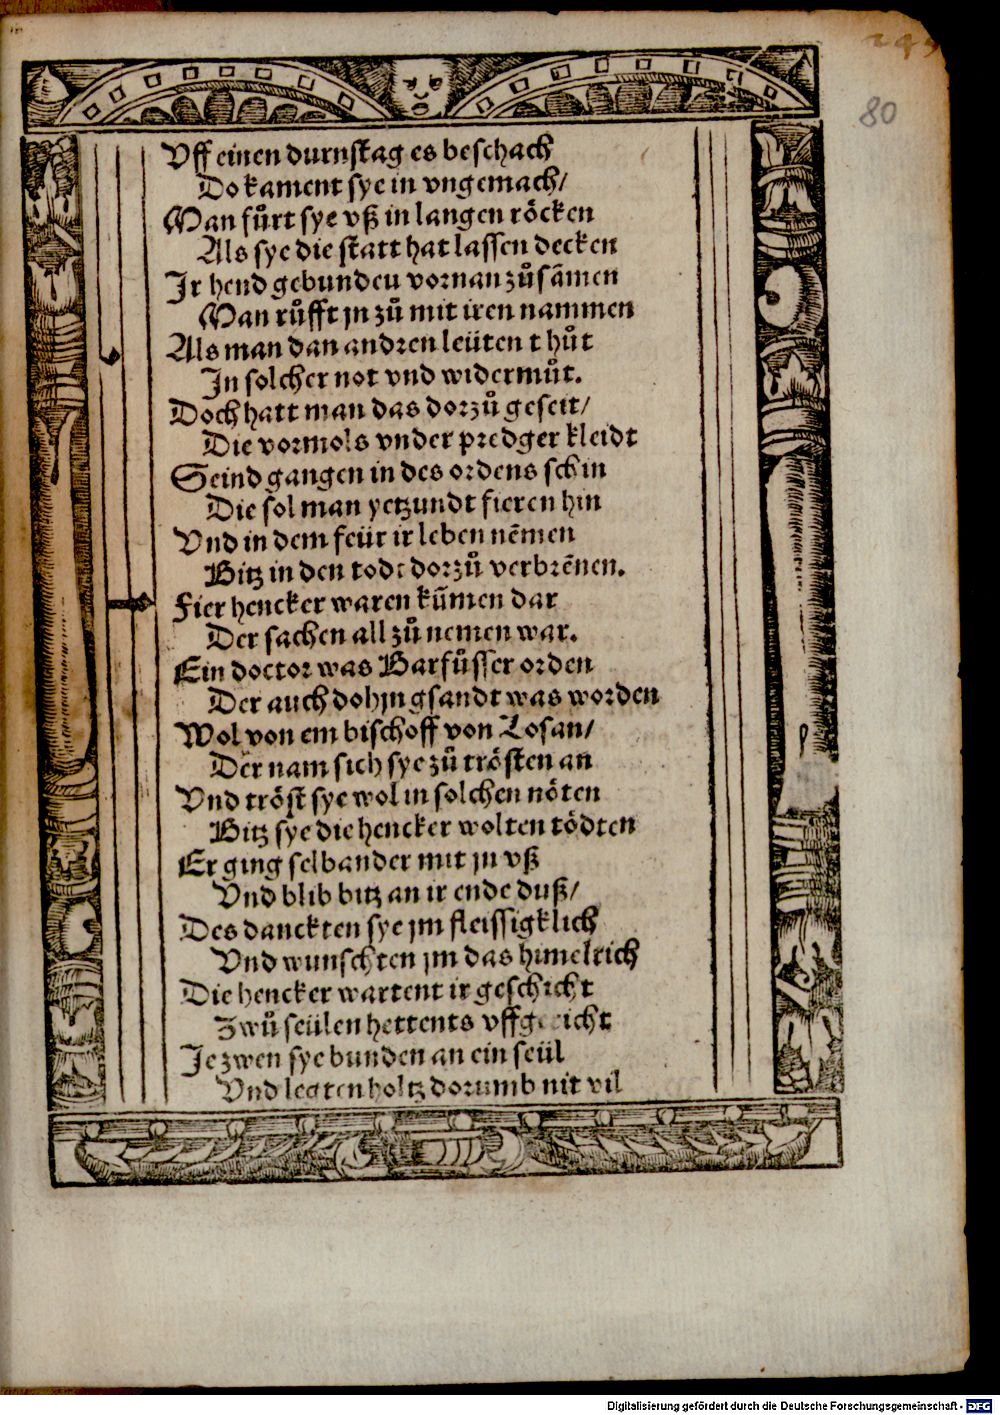 249
80
Vff einen durnstag es beschach
Do kament sye in vngemach/
Man fůrt sye vß in langen röcken
Als sye die statt hat lassen decken
Ir hend gebundeu vornan zůsãmen
Man růfft jn zů mit iren nammen
Als man dan andren leüten thůt
In solcher not vnd widermůt.
Doch hatt man das dorzů geseit/
Die vormols vnder predger kleidt
Seind gangen in des ordens schin
Die sol man yetzundt fieren hin
Vnd in dem feür ir leben nẽmen
Bitz in den todt dorzů verbrẽnen.
Fier hencker waren kũmen dar
Der sachen all zů nemen war.
Ein doctor was Barfůsser orden
Der auch dohjn gsandt was worden
Wol von em bischoff von Losan/
Der nam sich sye zů trösten an
Vnd tröst sye wol in solchen nöten
Bitz sye die hencker wolten tödten
Er ging selbander mit jn vß
Vnd blib bitz an ir ende duß/
Des danckten sye jm fleissigklich
Vnd wunschten jm das himelrich
Die hencker wartent ir geschicht
Zwů seülen hettents vffgericht
Je zwen sye bunden an ein seül
Vnd legten holtz dorumb nit vil
Digitalisierung gefördert durch die Deutsche Forschungsgemeinschaft - DFG